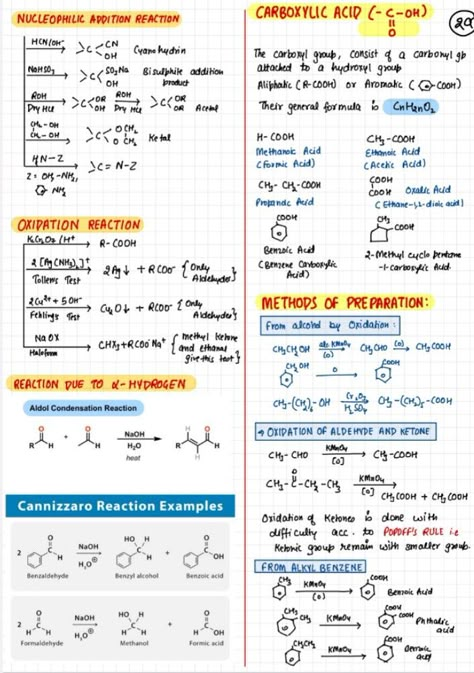 NUCLEOPHILIC ADDITION REACTION
HCN/OH⁻
>C< CN OH Cyanohydrin
NaHSO₃
>C< SO₃Na OH Bisulphite addition product
ROH
Dry HCl
>C< OR OH
ROH
Dry HCl
>C< OR OR Acetal
CH₂-OH
CH₂-OH
>C< O CH₂ O CH₂ Ketal
H₂N-Z
>C=N-Z
Z = OH, -NH₂,
NH₂
OXIDATION REACTION
K₂Cr₂O₇/H⁺
R-COOH
2[Ag(NH₃)₂]⁺
Tollens Test
2Ag↓ + RCOO⁻ {Only Aldehydes}
2Cu²⁺ + 5OH⁻
Fehlings Test
Cu₂O↓ + RCOO⁻ {Only Aldehydes}
NaOX
Haloform
CHX₃ + RCOO⁻Na⁺ {methyl ketone and ethanal give this test}
REACTION DUE TO α-HYDROGEN
Aldol Condensation Reaction
R H + H NaOH H₂O heat R H
Cannizzaro Reaction Examples
2 H NaOH H₃O⊕ HO H H + O OH
Benzaldehyde Benzyl alcohol Benzoic acid
2 H H NaOH H₃O⊕ HO H H H + O H OH
Formaldehyde Methanol Formic acid
CARBOXYLIC ACID (-C-OH)
O
The carboxyl group, consist of a carbonyl gp
attached to a hydroxyl group
Aliphatic (R-COOH) or Aromatic ( -COOH)
Their general formula is CnH2nO₂
H-COOH
Methanoic Acid
(Formic Acid)
CH₃-COOH
Ethanoic Acid
(Acetic Acid)
CH₃-CH₂-COOH
Propanoic Acid
COOH
COOH Oxalic Acid
(Ethane-1,2-dioic acid)
COOH
Benzoic Acid
(Benzene Carboxylic Acid)
CH₃
COOH
2-Methyl cyclo pentane
-1-carboxylic Acid.
METHODS OF PREPARATION:
From alcohol by Oxidation:
CH₃CH₂OH alk. KMnO₄ [O] CH₃CHO [O] CH₃COOH
CH₂OH O COOH
CH₃-(CH₂)₅-OH Cr₂O₃ H₂SO₄ CH₃-(CH₂)₅-COOH
→ OXIDATION OF ALDEHYDE AND KETONE
CH₃-CHO KMnO₄ [O] CH₃-COOH
CH₃-C-CH₂-CH₃ KMnO₄ [O]
CH₃COOH + CH₃COOH
Oxidation of Ketones is done with
difficulty acc. to POPOFF'S RULE i.e
Ketonic group remain with smaller group.
FROM ALKYL BENZENE
CH₃ KMnO₄ [O] COOH Benzoic Acid
CH₃ CH₃ KMnO₄ COOH COOH Phthalic acid
CH₂CH₃ KMnO₄ COOH Benzoic acid